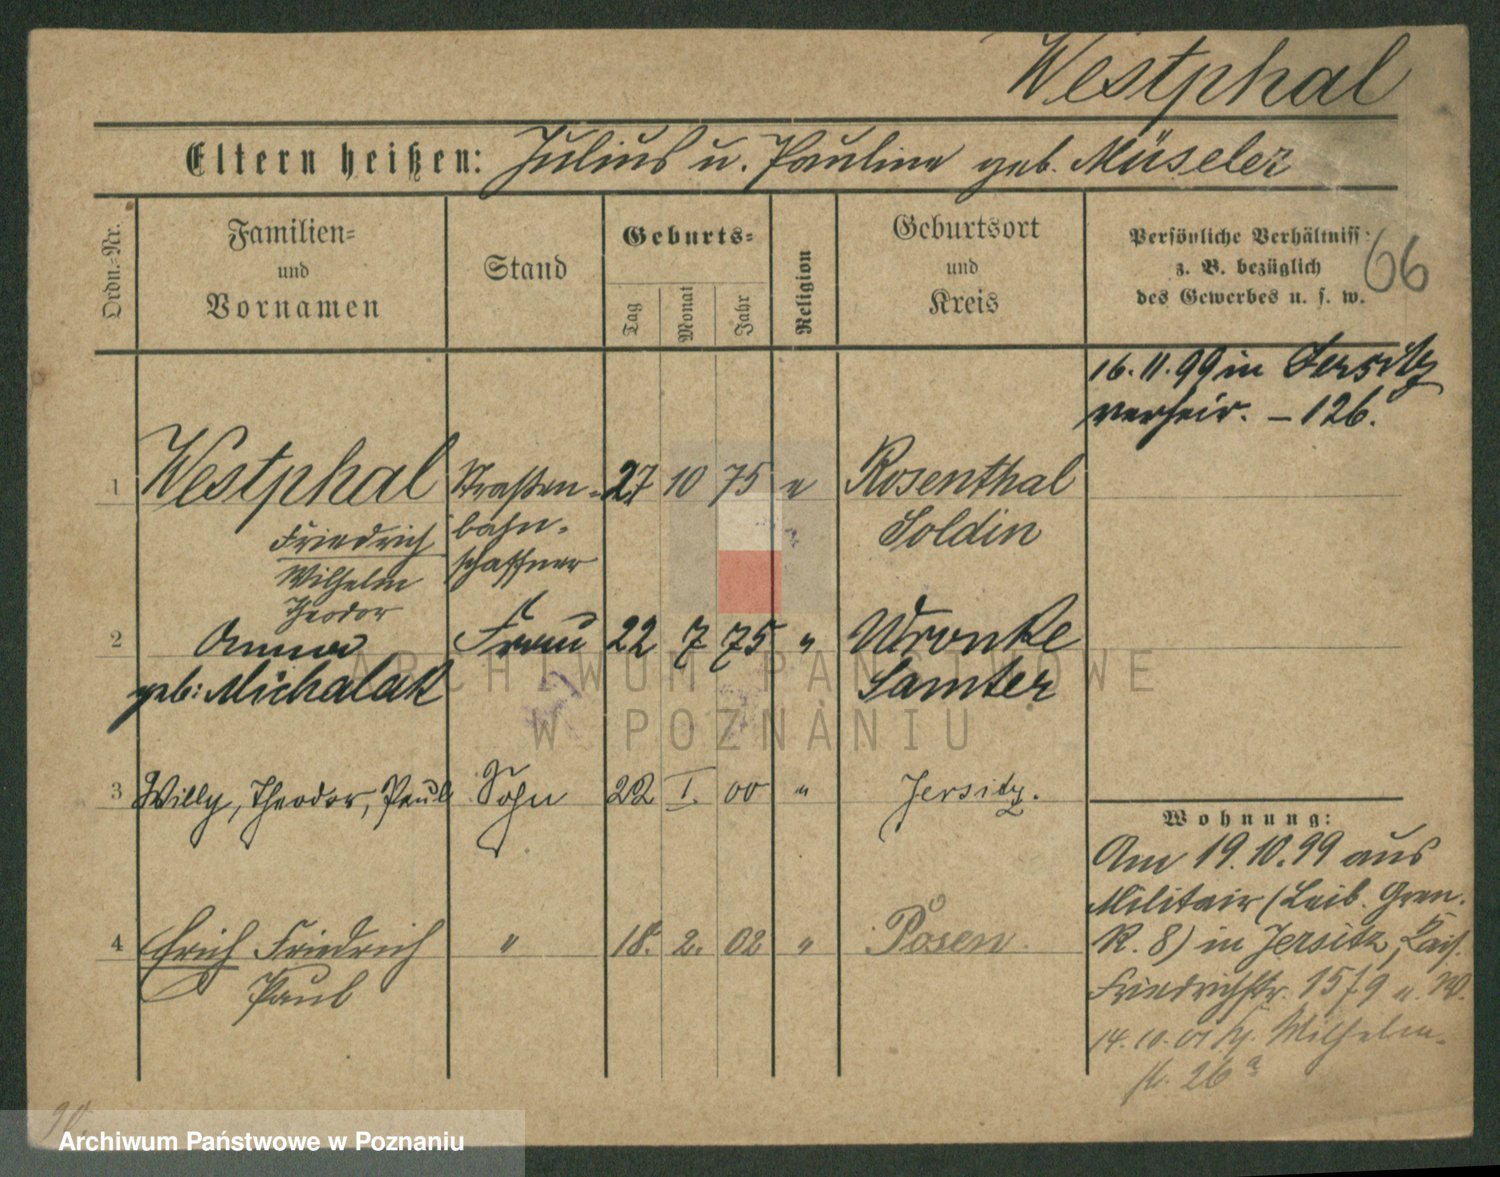 Westphal
Eltern heißen: Julius u. Pauline geb. Müseler
Ordn.=Nr.
Familien=
und
Vornamen
Stand
Geburts=
Tag
Monat
Jahr
Religion
Geburtsort
und
Kreis
Persönliche Verhältniss
z. B. bezüglich
des Gewerbes u. s. w.
66
16. 11. 99 in Jersitz
verheir. – 126.
1 Westphal Straßen- 27 10 75 e Rosenthal
Friedrich bahn- Soldin
Wilhelm schaffner
Theodor
2 Anna Frau 22 7 75 " Wronke
geb: Michalak Samter
3 Willy, Theodor, Paul Sohn 22 I. 00 " Jersitz.
4 Erich Friedrich " 18. 2. 02 " Posen
Paul
Wohnung:
Am 19. 10. 99 aus
Militair (Leib. Gren.
R. 8) in Jersitz, Kais.
Friedrichstr. 15 f. 9 u. W.
14. 10. 01 Wilhelm-
str. 26 a
ARCHIWUM PAŃSTWOWE
W POZNANIU
Archiwum Państwowe w Poznaniu